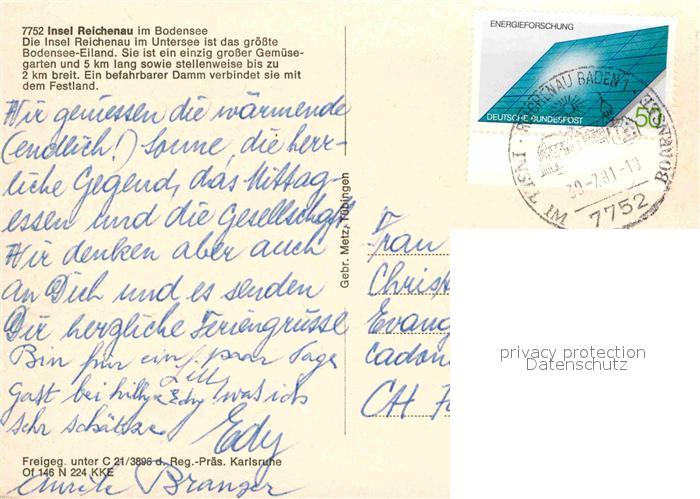 7752 Insel Reichenau im Bodensee
Die Insel Reichenau im Untersee ist das größte
Bodensee-Eiland. Sie ist ein einzig großer Gemüse-
garten und 5 km lang sowie stellenweise bis zu
2 km breit. Ein befahrbarer Damm verbindet sie mit
dem Festland.
Wir geniessen die wärmende
(endlich!) Sonne, die herr-
liche Gegend, das Mittag-
essen und die Gesellschaft
Wir denken aber auch
an Dich und es senden
Dir herzliche Feriengrüsse
Bin für ein paar Tage
Gast bei Lilly & Edy was ich
sehr schätze. Edy
Branger
Freigeg. unter C 21/3896 d. Reg.-Präs. Karlsruhe
Of 146 N 224 KKE
Gebr. Metz, Tübingen
ENERGIEFORSCHUNG
DEUTSCHE BUNDESPOST
50
INSEL REICHENAU BADEN 1
IM BODENSEE
7752
Frau
Christ
Evang
CH
privacy protection
Datenschutz